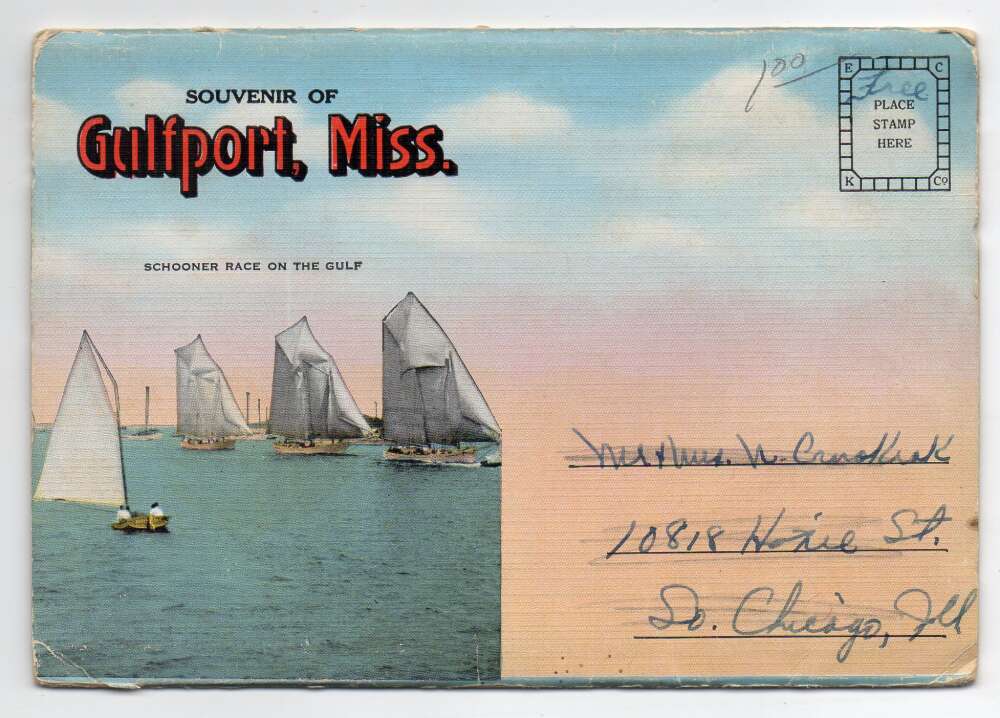 SOUVENIR OF
Gulfport, Miss.
SCHOONER RACE ON THE GULF
1 00
E C
Free
PLACE
STAMP
HERE
K Co
Mr & Mrs. N.
10818 St.
So. Chicago, Ill